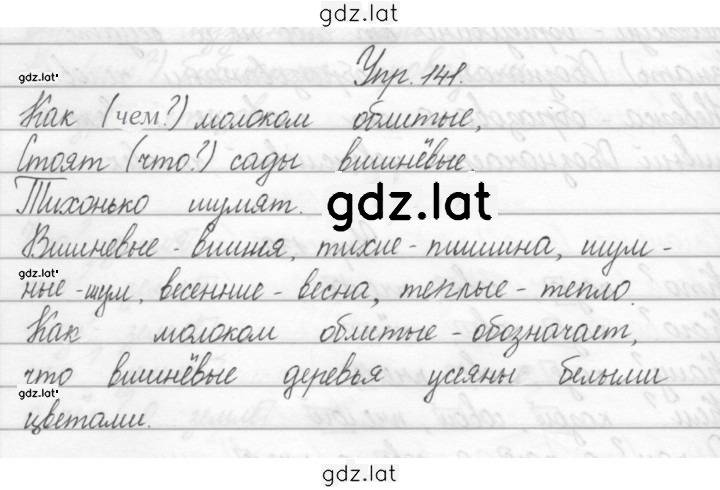 gdz.lat
gdz.lat Упр. 141.
Как (чем?) молоком облитые,
Стоят (что?) сады вишнёвые
Тихонько шумят. gdz.lat
Вишневые - вишня, тихие - тишина, шум-
gdz.lat
ные - шум, весенние - весна, теплые - тепло.
Как молоком облитые - обозначает,
что вишнёвые деревья усеяны белыми
gdz.lat
цветами.
gdz.lat